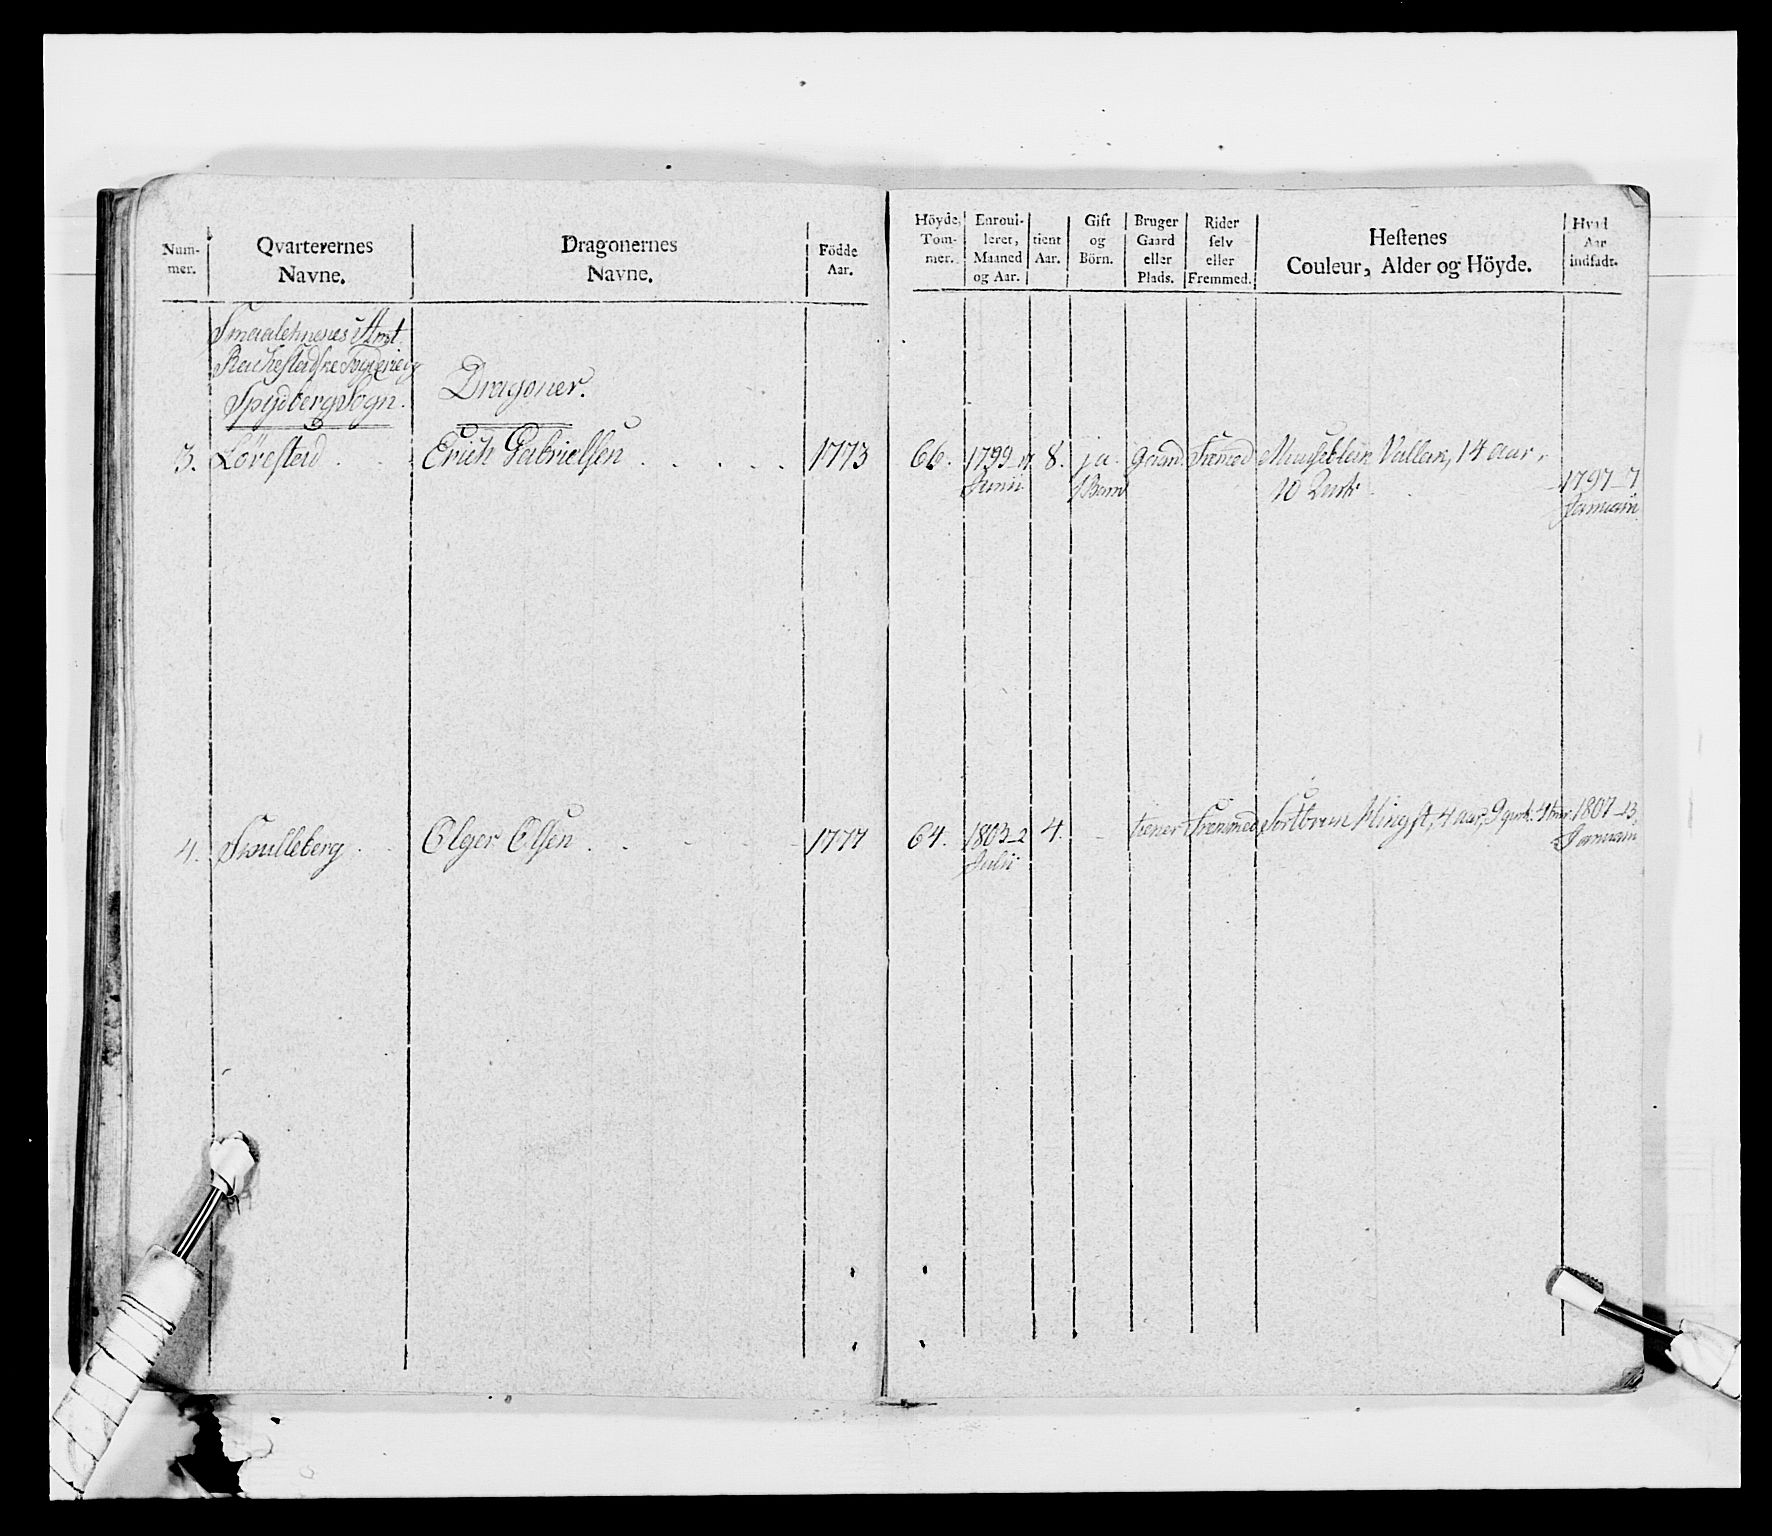 Num-
mer.
Qvarterernes
Navne.
Dragonernes
Navne.
Födde
Aar.
Höyde,
Tom-
mer.
Enroul-
leret,
Maaned
og Aar.
tient
Aar.
Gift
og
Börn.
Bruger
Gaard
eller
Plads.
Rider
selv
eller
Fremmed.
Hestenes
Couleur, Alder og Höyde.
Hvad
Aar
indsadt.
Smaalehnenes Amt
Spydberg Sogn.
Dragoner.
3. Lörestad . . Erich Gabrielsen . . . . . 1773 66. 1799_17 8. ja. gaard Fremed Vallak, 14 aar,
Junii 1 Barn 10 Qvart. 1797_7
Januarii
4. Skulleberg . . Olger Olsen . . . . 1777 64. 1803_2 4. _ tiener Fremmed Sortbrun Hingst, 4 aar, 9 qvrt. 1807_13
Julii Januarii